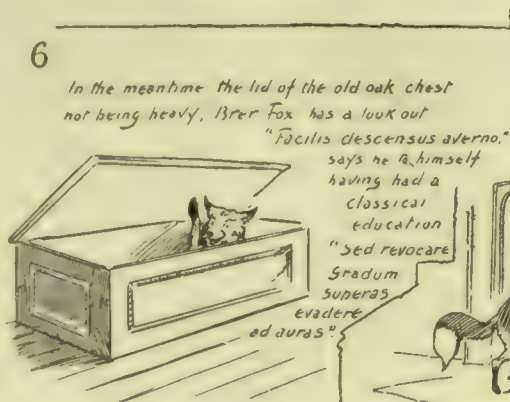 6
In the meantime the lid of the old oak chest
not being heavy, Brer Fox has a look out
"Facilis descensus averno,"
says he to himself
having had a
classical
education
"Sed revocare
Gradum
superas
evadere
ad auras".